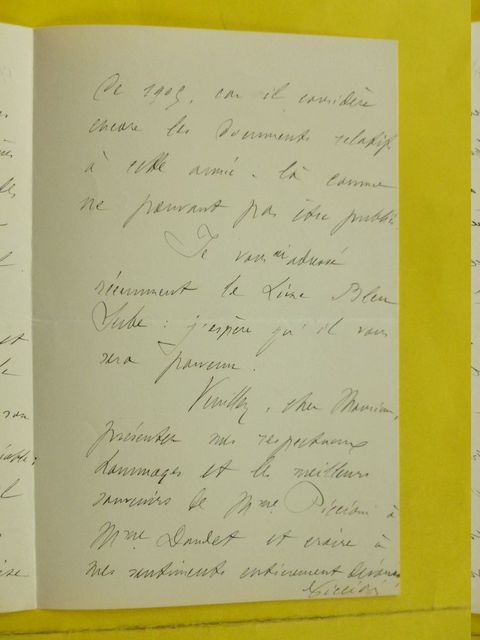 de 1905, car il considère
encore les documents relatifs
à cette année-là comme
ne pouvant pas être publiés
Je vous ai adressé
récemment le Livre Bleu
Serbe : j'espère qu'il vous
sera parvenu.
Veuillez, cher Monsieur,
présenter mes respectueux
hommages et les meilleurs
souvenirs de Mme Piccioni à
Mme Daudet et croire à
mes sentiments entièrement dévoués
Piccioni